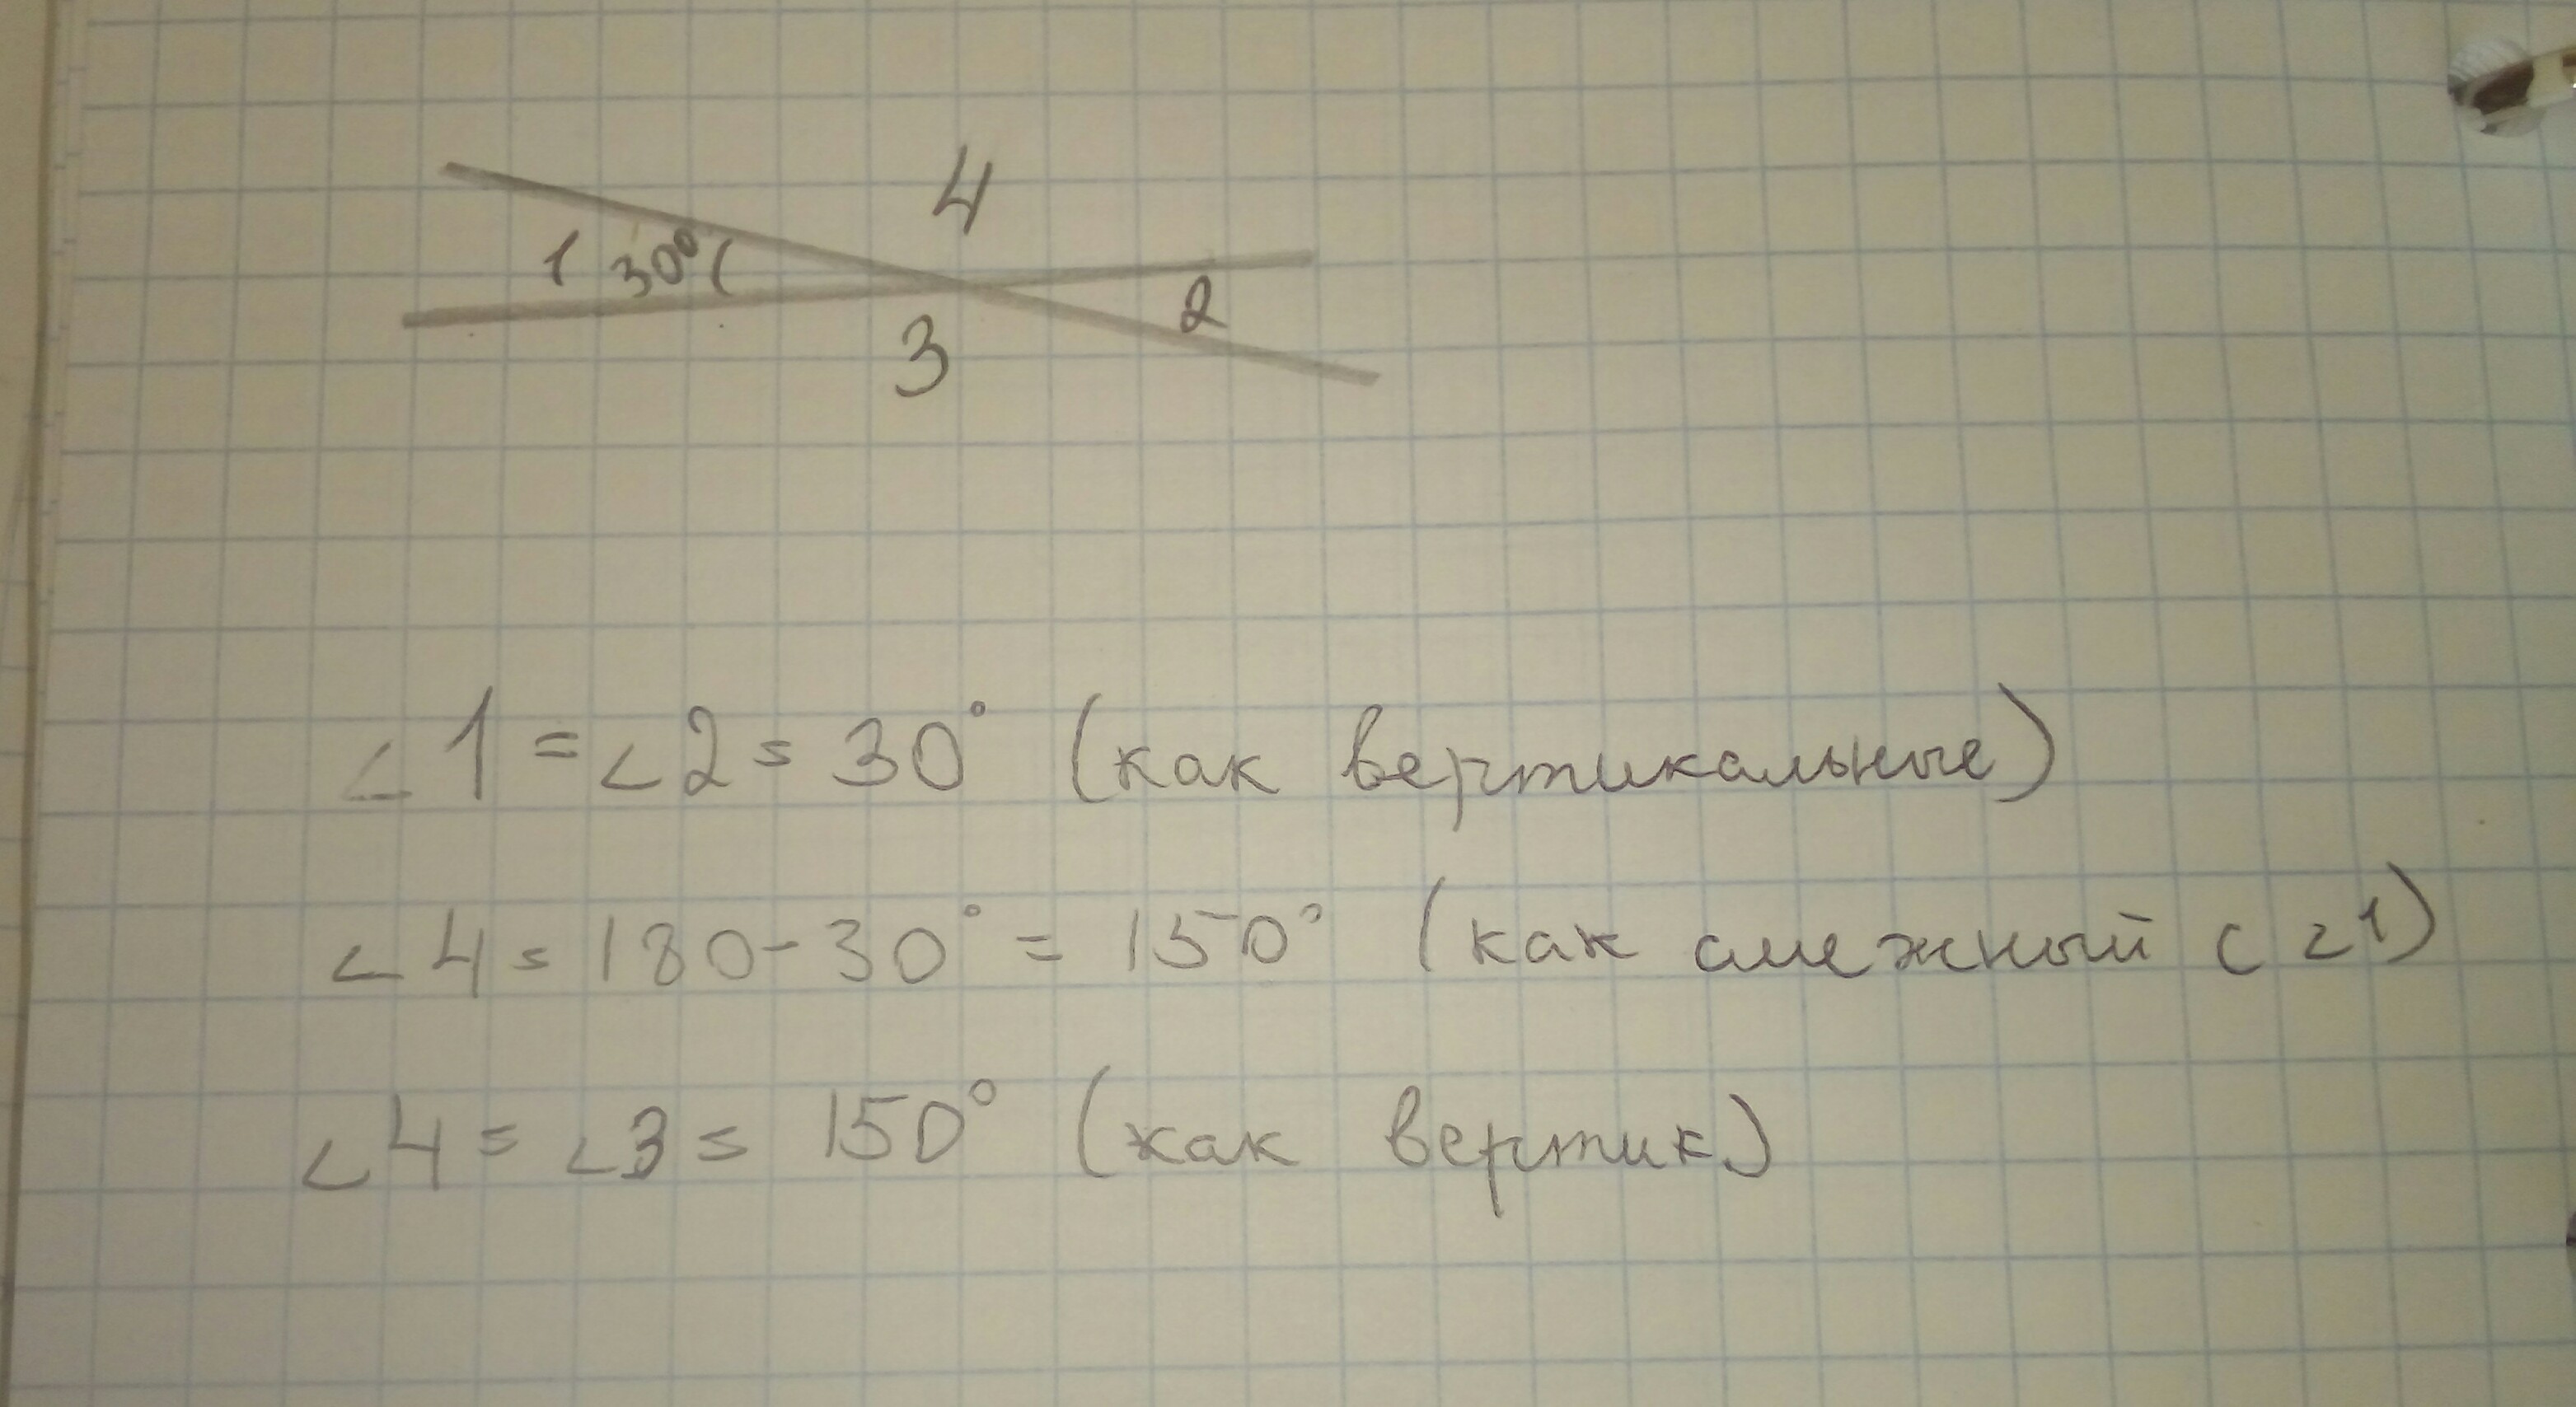 4
1 30°
2
3
∠1 = ∠2 = 30° (как вертикальные)
∠4 = 180 - 30° = 150° (как смежный с ∠1)
∠4 = ∠3 = 150° (как вертик)